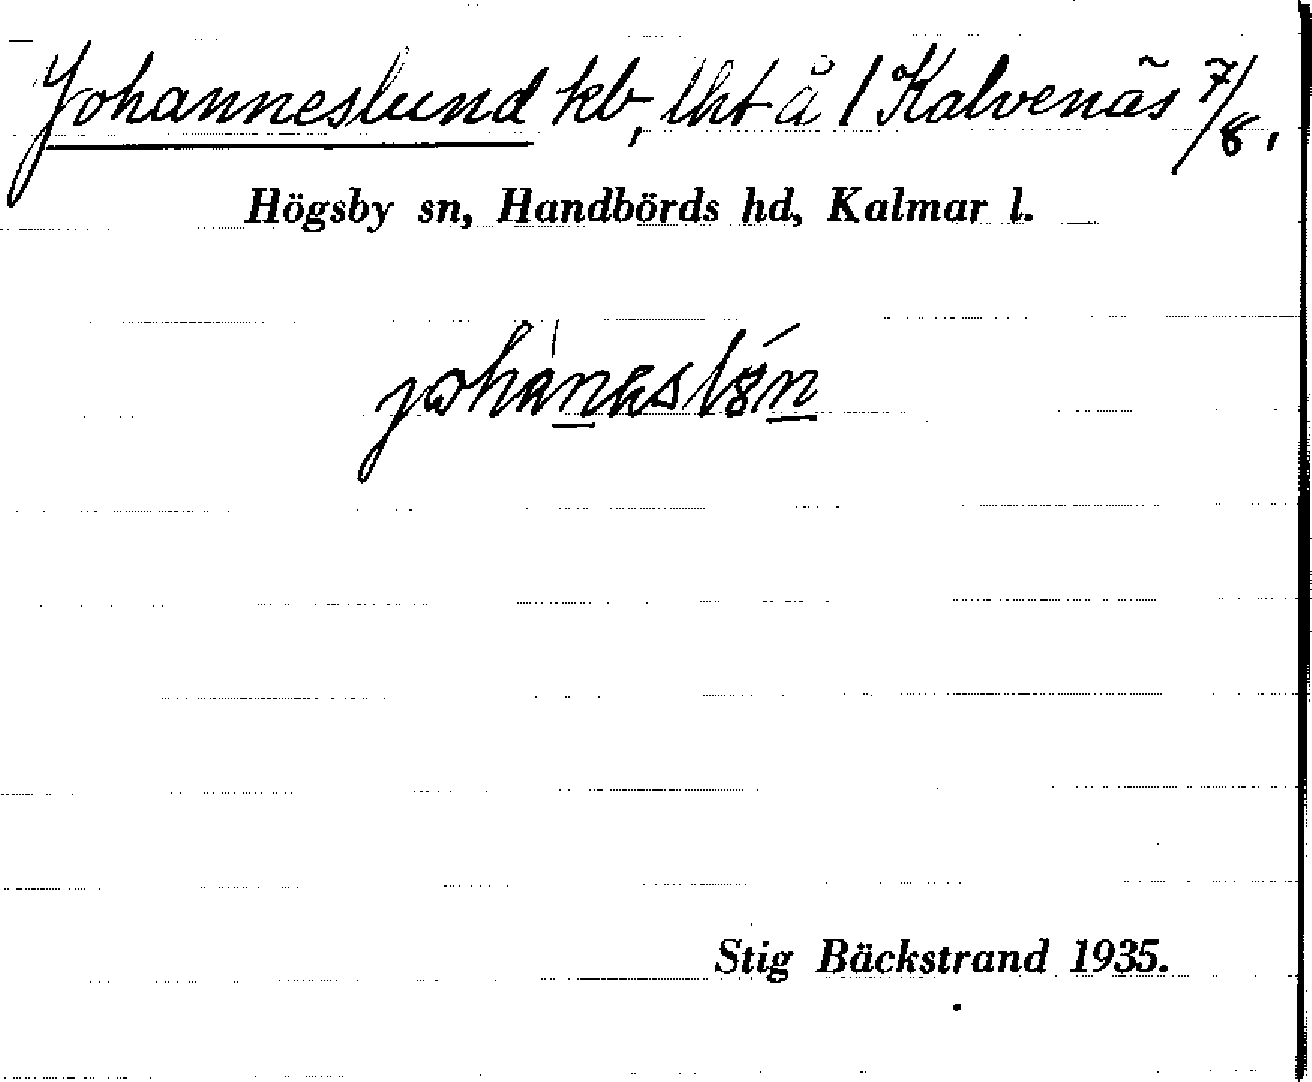 Johanneslund kb, lht å 1 Kalvenäs 7/8.
Högsby sn, Handbörds hd, Kalmar l.
Stig Bäckstrand 1935.